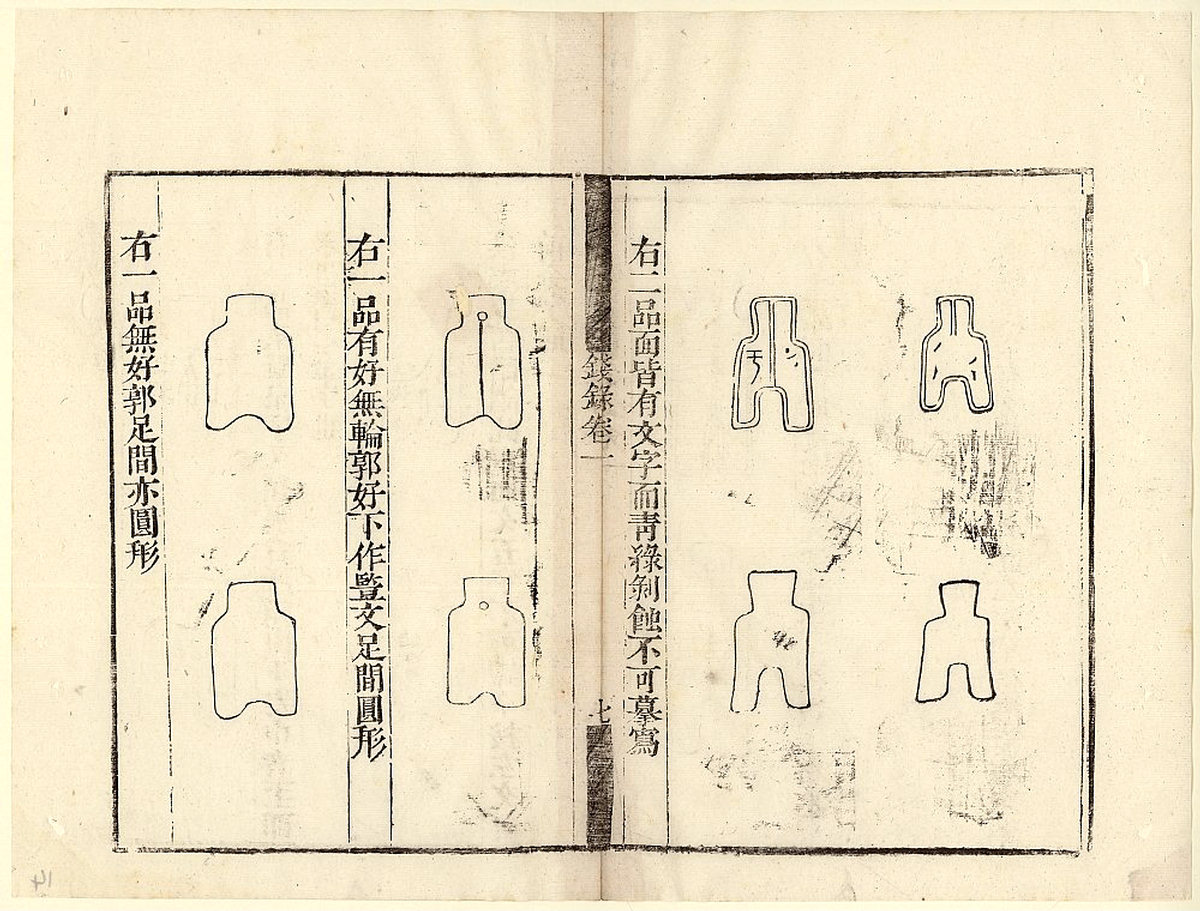 右二品面皆有文字而青綠剝蝕不可摹寫
錢錄卷一
七
右一品有好無輪郭好下作豎文足間圓形
右一品無好郭足間亦圓形
14